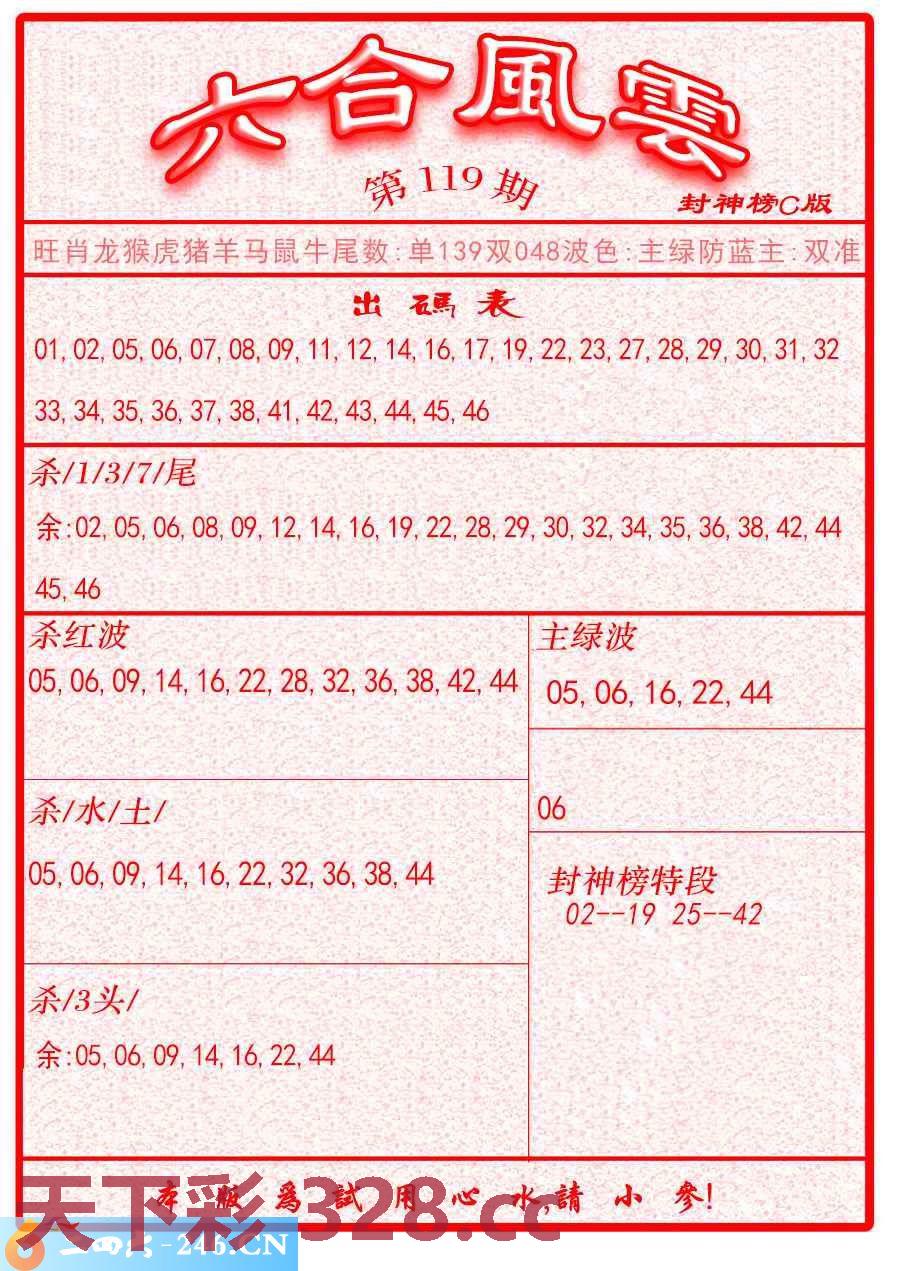 六合風雲
第119期
封神榜C版
旺肖龙猴虎猪羊马鼠牛尾数:单139双048波色:主绿防蓝主:双准
出碼表
01,02,05,06,07,08,09,11,12,14,16,17,19,22,23,27,28,29,30,31,32
33,34,35,36,37,38,41,42,43,44,45,46
杀/1/3/7/尾
余:02,05,06,08,09,12,14,16,19,22,28,29,30,32,34,35,36,38,42,44
45,46
杀红波
05,06,09,14,16,22,28,32,36,38,42,44
主绿波
05,06,16,22,44
06
杀/水/土/
05,06,09,14,16,22,32,36,38,44
封神榜特段
02--19 25--42
杀/3头/
余:05,06,09,14,16,22,44
本版爲試用心水,請小參!
天下彩 328.cc
-246.CN